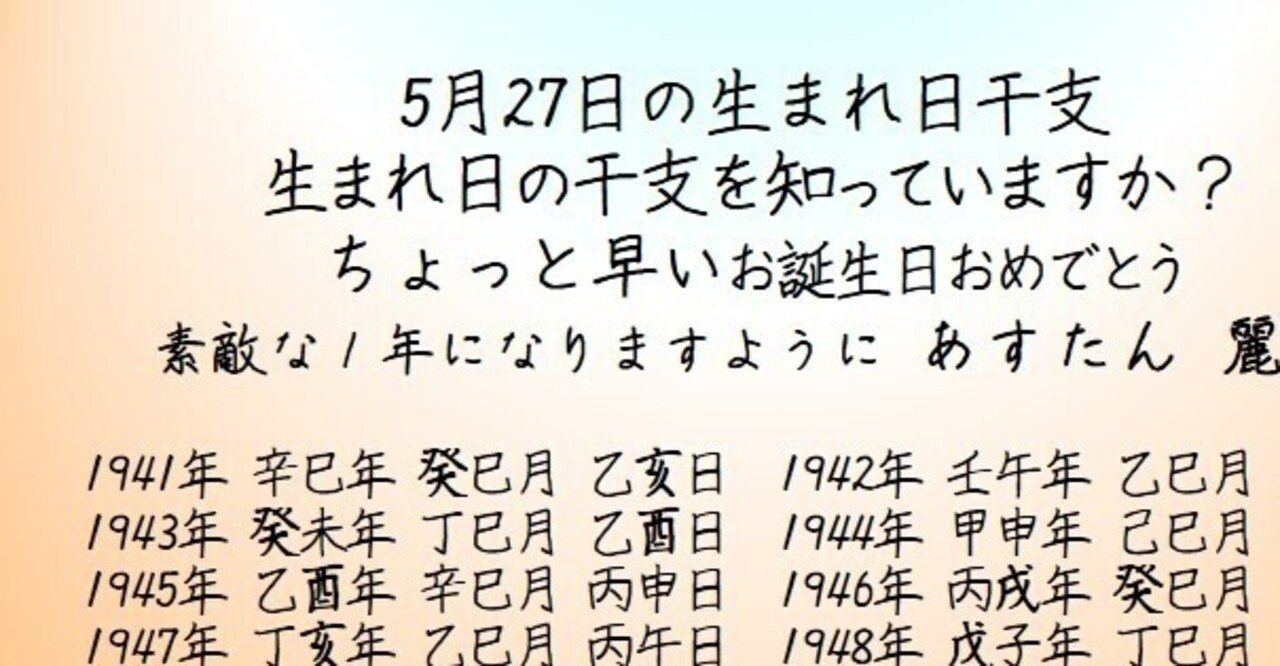 5月27日の生まれ日干支
生まれ日の干支を知っていますか？
ちょっと早いお誕生日おめでとう
素敵な1年になりますように あすたん 麗
1941年 辛巳年 癸巳月 乙亥日 1942年 壬午年 乙巳月
1943年 癸未年 丁巳月 乙酉日 1944年 甲申年 己巳月
1945年 乙酉年 辛巳月 丙申日 1946年 丙戌年 癸巳月
1947年 丁亥年 乙巳月 丙午日 1948年 戊子年 丁巳月